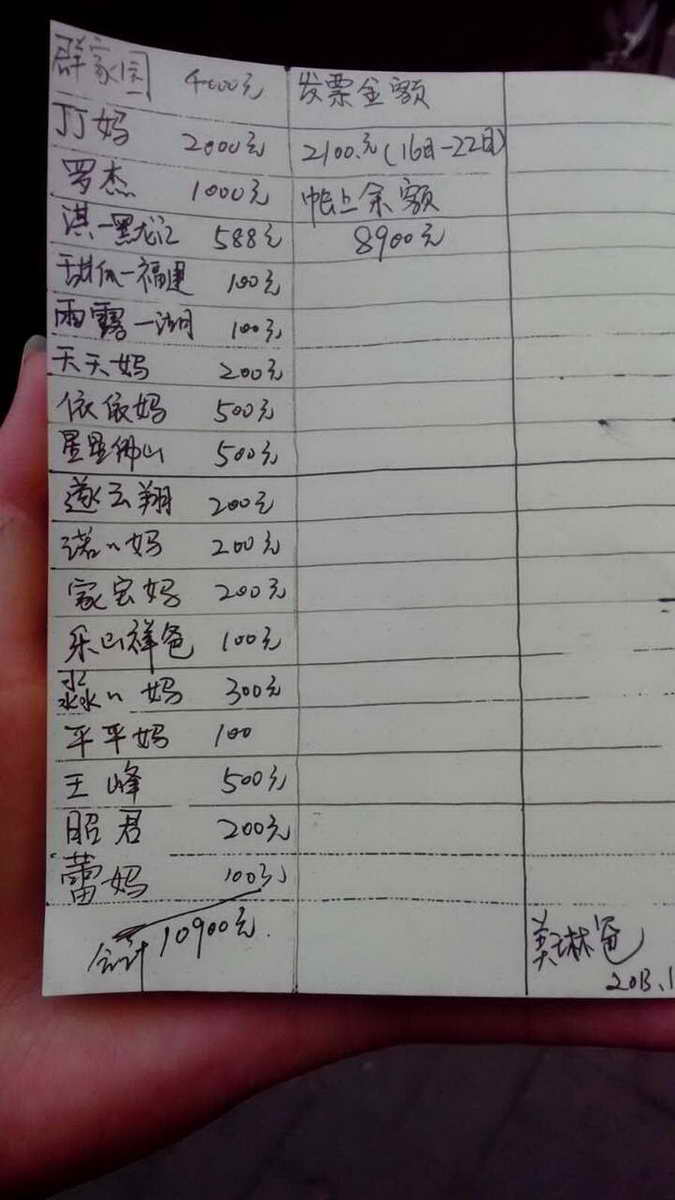 群家园 4000元
JJ妈 2000元
罗杰 1000元
淇一黑龙江 588元
甜瓜一福建 100元
雨露一湖 100元
天天妈 200元
依依妈 500元
星星佛山 500元
遂云翔 200元
诺〃妈 200元
家宏妈 200元
乐山祥爸 100元
淼〃妈 300元
平平妈 100
王峰 500元
昭君 200元
蕾妈 100元
合计 10900元.
发票金额
2100.元(16日-22日)
帐上余额
8900元
美琳爸
2013.1